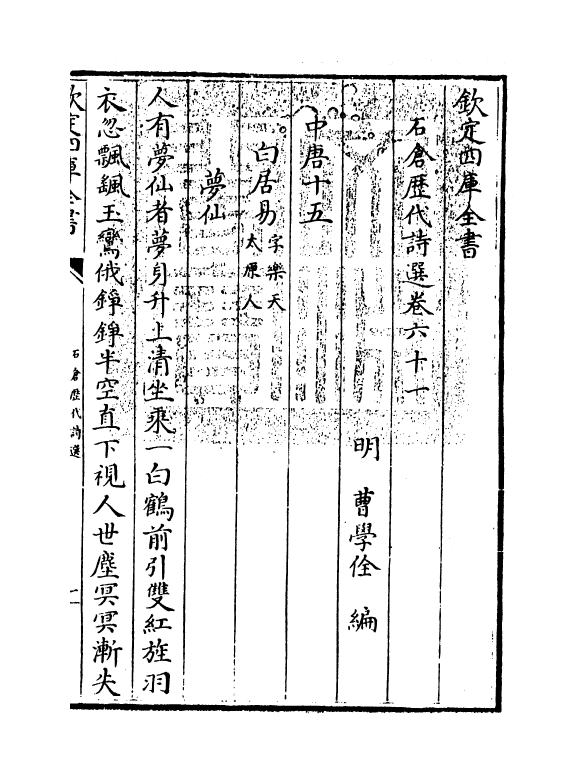 欽定四庫全書
石倉歷代詩選卷六十一
明　曹學佺　編
中唐十五
白居易 字樂天
太原人
夢仙
人有夢仙者夢身升上清坐乘一白鶴前引雙紅旌羽
衣忽飄飄玉鸞俄錚錚半空直下視人世塵冥冥漸失
欽定四庫全書
石倉歷代詩選
一